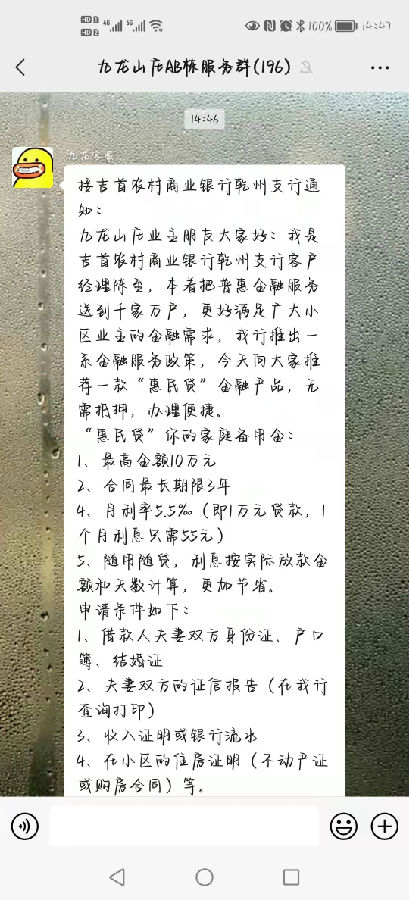 100% 14:47
九龙山庄AB栋服务群(196)
14:46
接吉首农村商业银行乾州支行通
知:
九龙山庄业主朋友大家好:我是
吉首农村商业银行乾州支行客户
经理陈垒,本着把普惠金融服务
送到千家万户,更好满足广大小
区业主的金融需求,我行推出一
系金融服务政策,今天向大家推
荐一款“惠民贷”金融产品,无
需抵押,办理便捷。
“惠民贷”你的家庭备用金:
1、最高金额10万元
2、合同最长期限3年
4、月利率5.5‰(即1万元贷款,1
个月利息只需55元)
5、随用随贷,利息按实际放款金
额和天数计算,更加节省。
申请条件如下:
1、借款人夫妻双方身份证、户口
簿、结婚证
2、夫妻双方的征信报告(在我行
查询打印)
3、收入证明或银行流水
4、在小区的住房证明(不动产证
或购房合同)等。